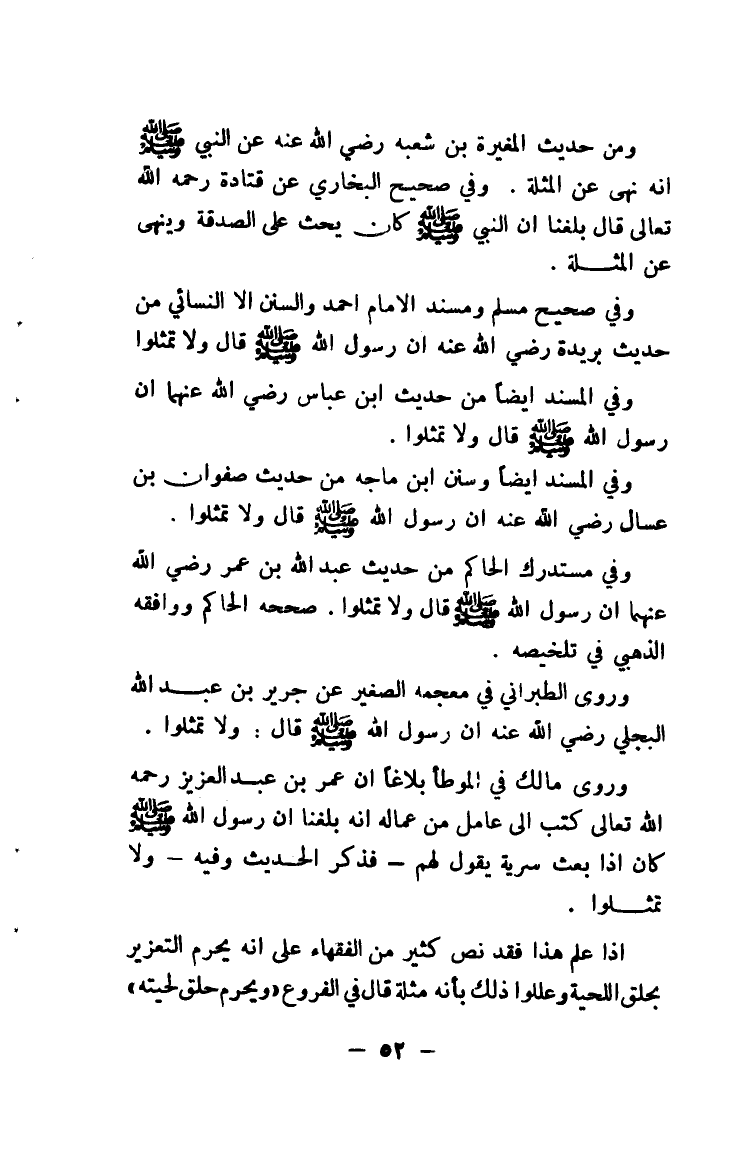 ومن حديث المغيرة بن شعبه رضي الله عنه عن النبي ﷺ
انه نهى عن المثلة . وفي صحيح البخاري عن قتادة رحمه الله
تعالى قال بلغنا ان النبي ﷺ كان يحث على الصدقة وينهى
عن المثـــلة .
وفي صحيح مسلم ومسند الامام احمد والسنن الا النسائي من
حديث بريدة رضي الله عنه ان رسول الله ﷺ قال ولا تمثلوا
وفي المسند ايضاً من حديث ابن عباس رضي الله عنهما ان
رسول الله ﷺ قال ولا تمثلوا .
وفي المسند ايضاً وسنن ابن ماجه من حديث صفوان بن
عسال رضي الله عنه ان رسول الله ﷺ قال ولا تمثلوا .
وفي مستدرك الحاكم من حديث عبد الله بن عمر رضي الله
عنهما ان رسول الله ﷺ قال ولا تمثلوا . صححه الحاكم ووافقه
الذهبي في تلخيصه .
وروى الطبراني في معجمه الصغير عن جرير بن عبـــد الله
البجلي رضي الله عنه ان رسول الله ﷺ قال : ولا تمثلوا .
وروى مالك في الموطأ بلاغاً ان عمر بن عبـد العزيز رحمه
الله تعالى كتب الى عامل من عماله انه بلغنا ان رسول الله ﷺ
كان اذا بعث سرية يقول لهم – فذكر الحـديث وفيه – ولا
تمثـــلوا .
اذا علم هذا فقد نص كثير من الفقهاء على انه يحرم التعزير
بحلق اللحية وعللوا ذلك بأنه مثلة قال في الفروع «ويحرم حلق لحيته»
– ٥٢ –